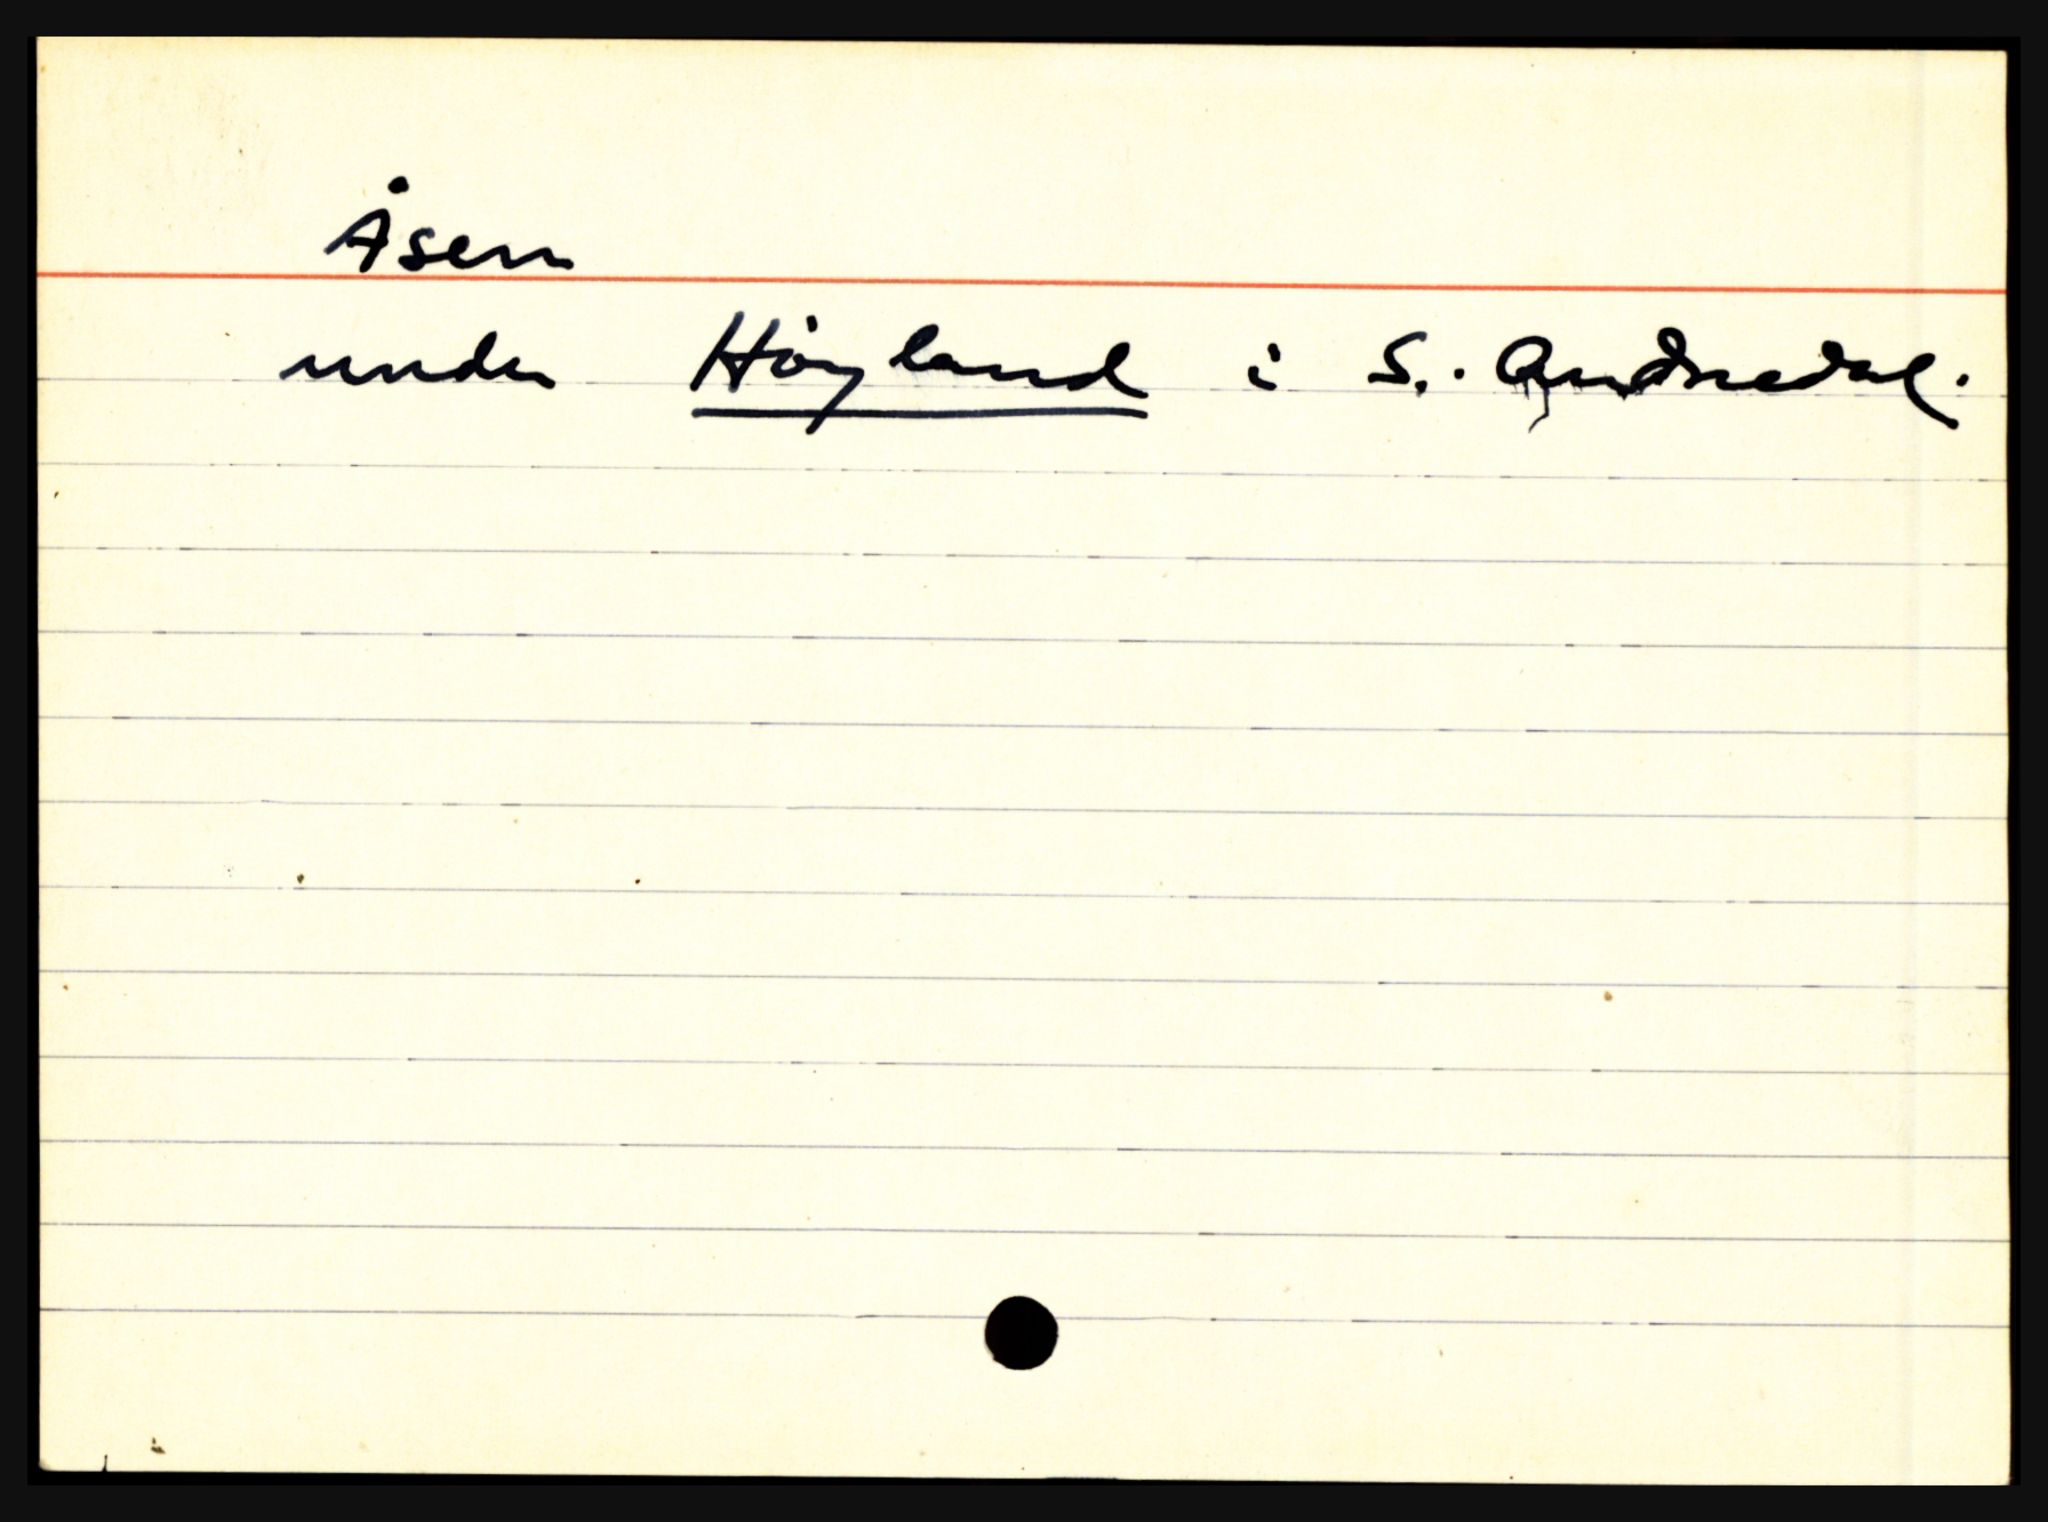 Åsen
under Høyland i S. Audnedal.